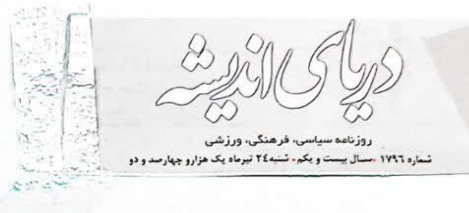 دریای اندیشه
روزنامه سیاسی، فرهنگی، ورزشی
شماره ۱۷۹٦ •سـال بیست و یکم• شنبه ۲٤ تیرماه یک هزارو چهارصد و دو